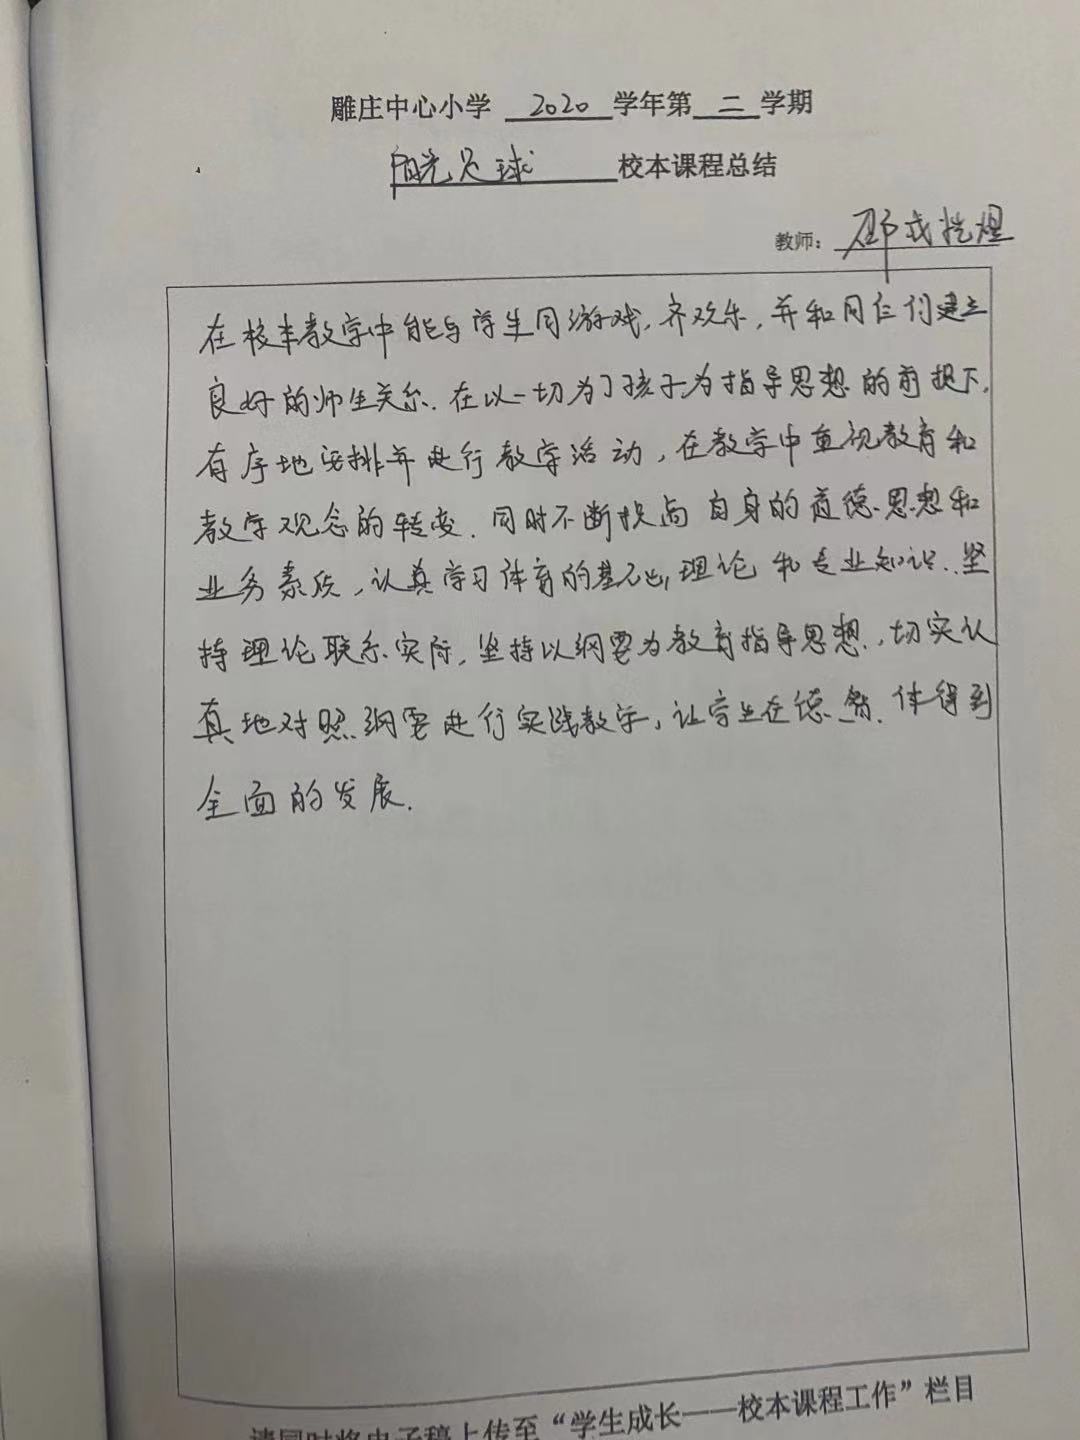 雕庄中心小学 2020 学年第 二 学期
阳光足球 校本课程总结
教师：
在校本教学中能与学生同游戏,齐欢乐,并和同仁们建立
良好的师生关系.在以一切为了孩子为指导思想的前提下.
有序地安排并进行教学活动,在教学中重视教育和
教学观念的转变.同时不断提高自身的道德思想和
业务素质,认真学习体育的基础理论和专业知识.坚
持理论联系实际,坚持以纲要为教育指导思想.,切实认
真地对照纲要进行实践教学,让学生在德.智.体得到
全面的发展.
请同时将电子稿上传至“学生成长——校本课程工作”栏目